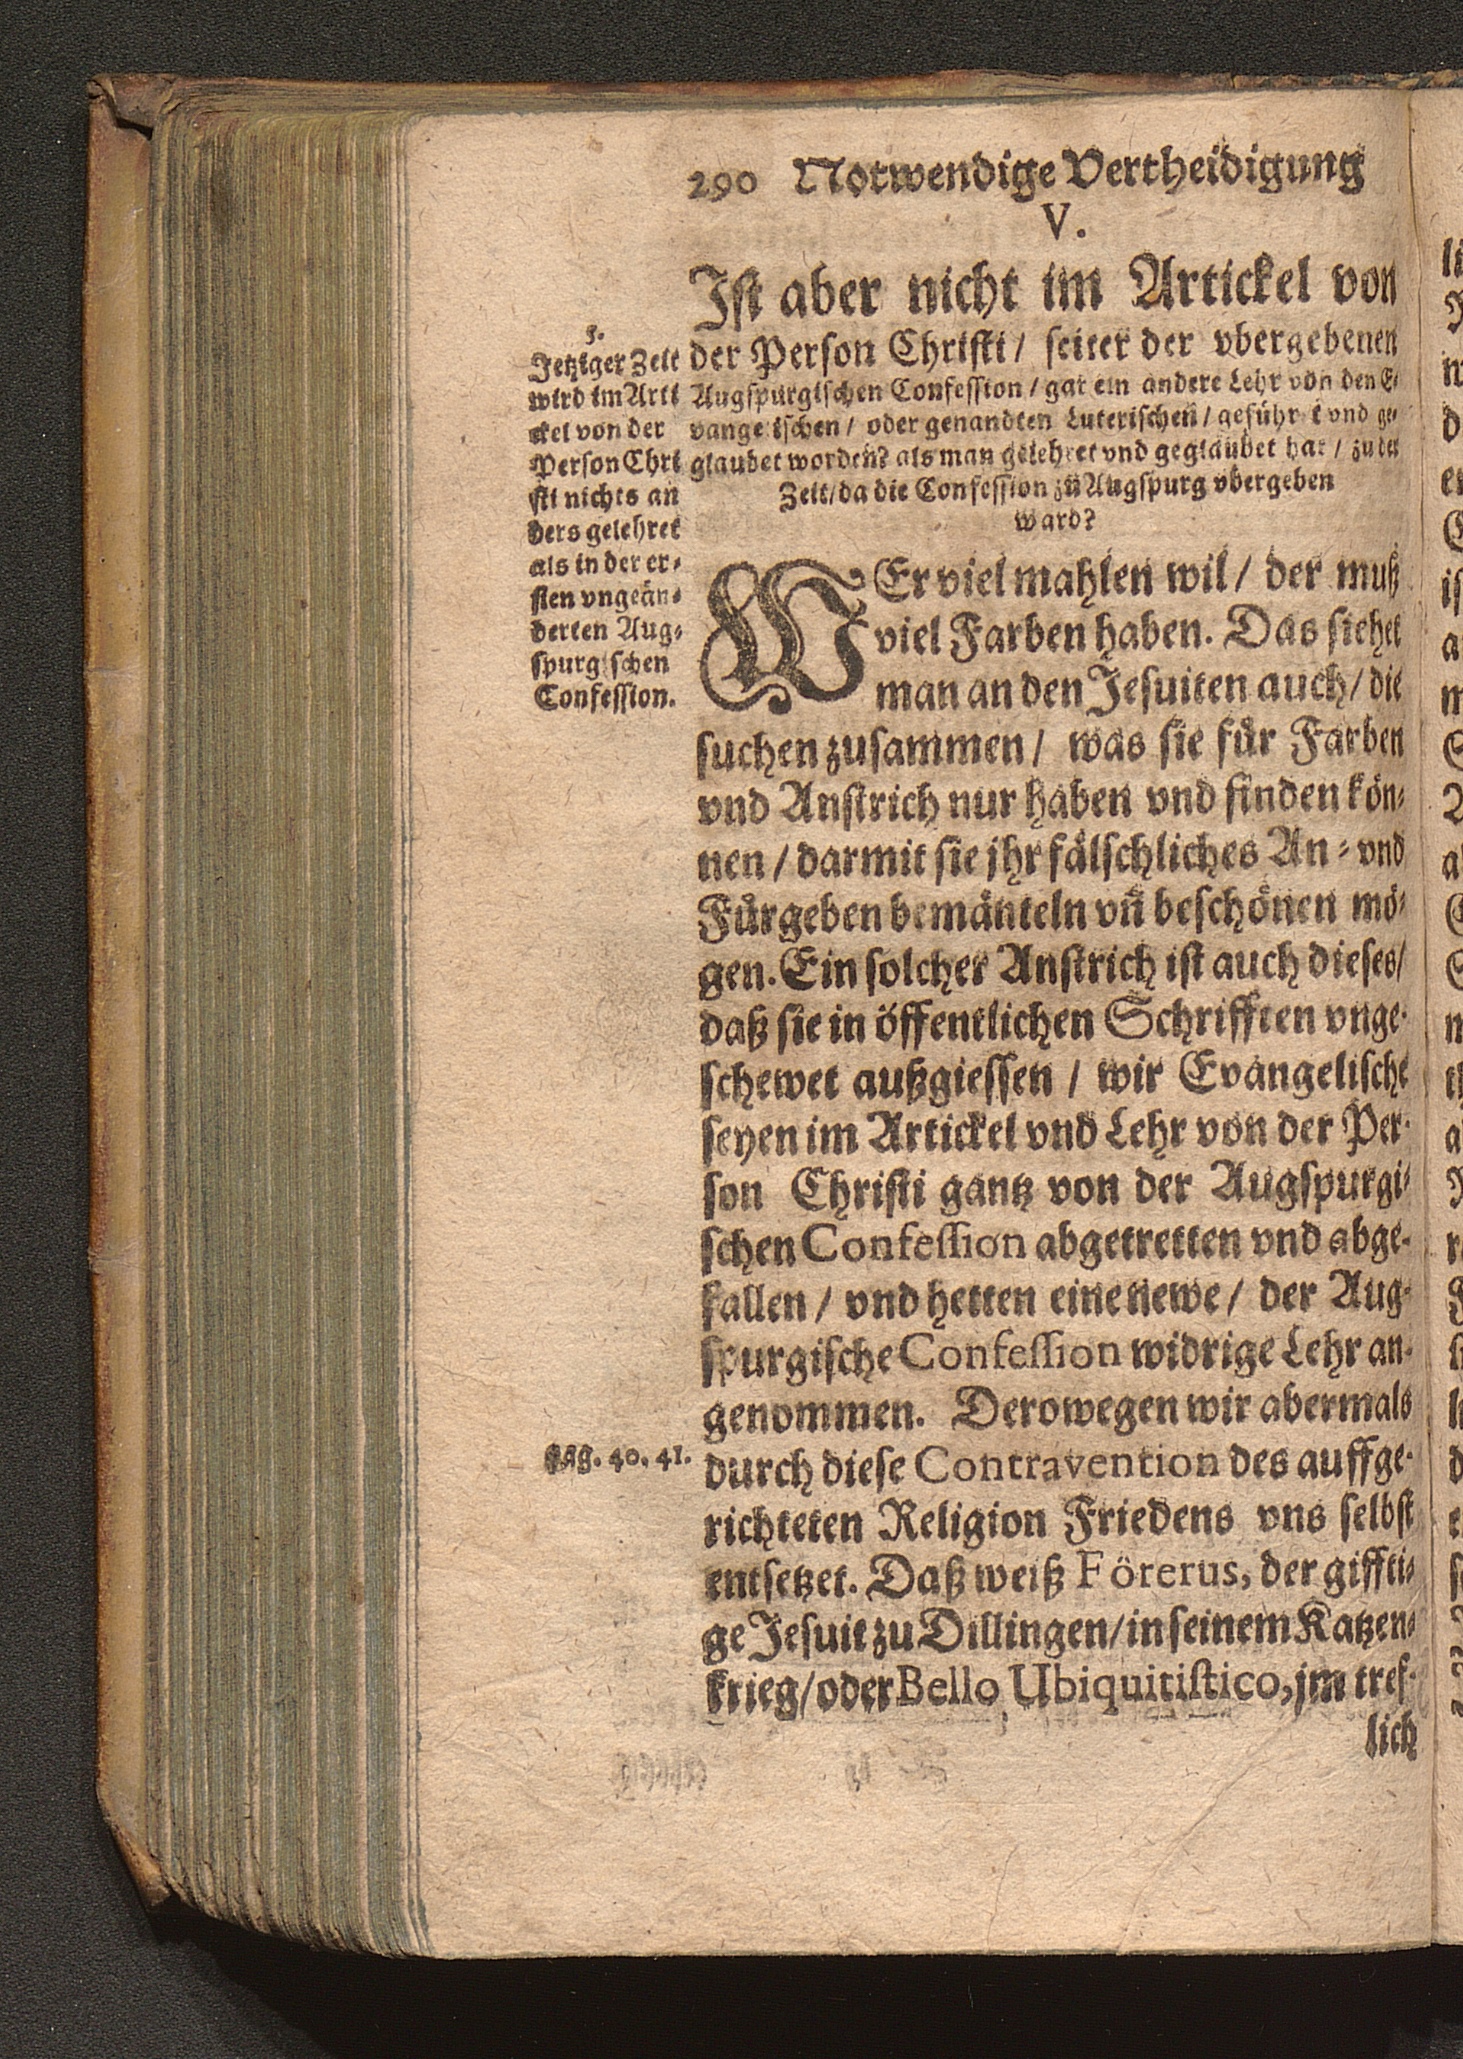 290 Notwendige Vertheidigung
V.
Ist aber nicht im Artickel von
der Person Christi / seiter der vbergebenen
Augspurgischen Confession / gar ein andere Lehr von den E-
vangelischen / oder genandten Luterischen / geführet vnd ge-
glaubet worden? als man gelehret vnd geglaubet hat / zu der
Zeit / da die Confession zu Augspurg vbergeben
ward?
5.
Jetziger Zeit
wird im Arti
ckel von der
Person Chri
sti nichts an
ders gelehret
als in der er-
sten vngeän-
derten Aug-
spurgischen
Confession.
WEr viel mahlen wil / der muß
viel Farben haben. Das siehet
man an den Jesuiten auch / die
suchen zusammen / was sie für Farben
vnd Anstrich nur haben vnd finden kön-
nen / darmit sie jhr fälschliches An- vnd
Fürgeben bemänteln vñ beschönen mö-
gen. Ein solcher Anstrich ist auch dieses /
daß sie in öffentlichen Schrifften vnge-
schewet außgiessen / wir Evangelische
seyen im Artickel vnd Lehr von der Per-
son Christi gantz von der Augspurgi-
schen Confession abgetretten vnd abge-
fallen / vnd hetten eine newe / der Aug-
spurgische Confession widrige Lehr an-
genommen. Derowegen wir abermals
pag. 40. 41.
durch diese Contravention des auffge-
richteten Religion Friedens vns selbst
entsetzet. Daß weiß Förerus, der giffti-
ge Jesuit zu Dillingen / in seinem Katzen-
krieg / oder Bello Ubiquitistico, jm tref-
lich